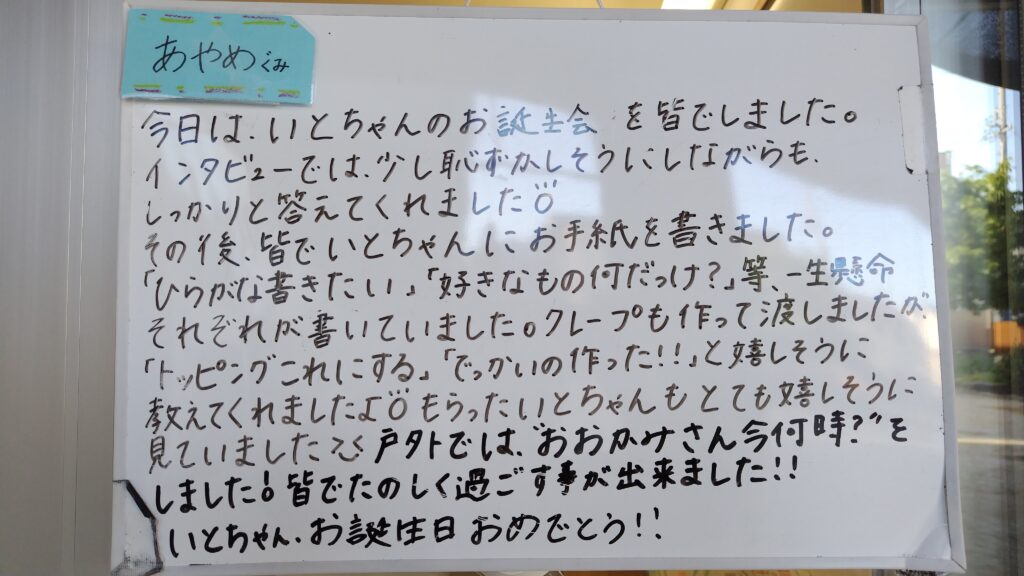 あやめぐみ
今日は、いとちゃんのお誕生会 を皆でしました。
インタビューでは、少し恥ずかしそうにしながらも、
しっかりと答えてくれました
その後、皆でいとちゃんにお手紙を書きました。
「ひらがな書きたい」「好きなもの何だっけ?」等、一生懸命
それぞれが書いていました。クレープも作って渡しましたが、
「トッピングこれにする」「でっかいの作った!!」と嬉しそうに
教えてくれましたよ もらったいとちゃんもとても嬉しそうに
見ていました 戸外では、"おおかみさん今何時?"を
しました! 皆でたのしく過ごす事が出来ました!!
いとちゃん、お誕生日 おめでとう!!